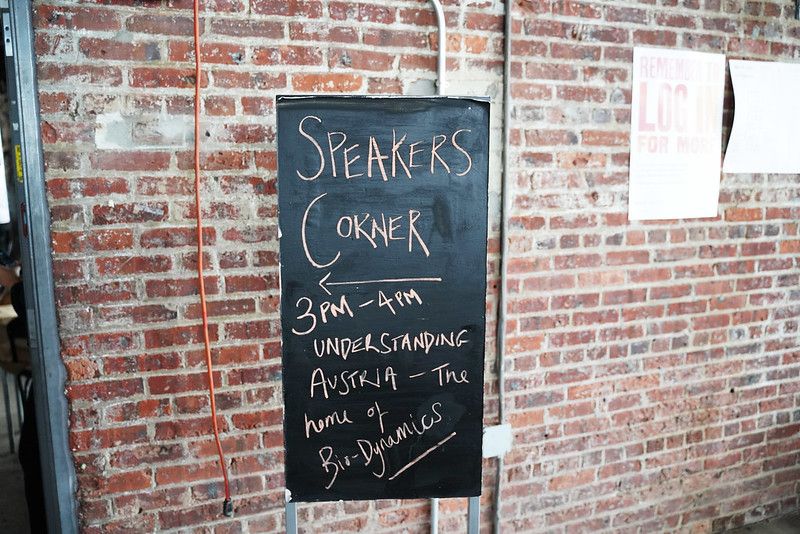 SPEAKERS
CORNER
3PM – 4PM
UNDERSTANDING
AUSTRIA – The
home of
Bio-Dynamics
REMEMBER TO
LOG IN
FOR MORE